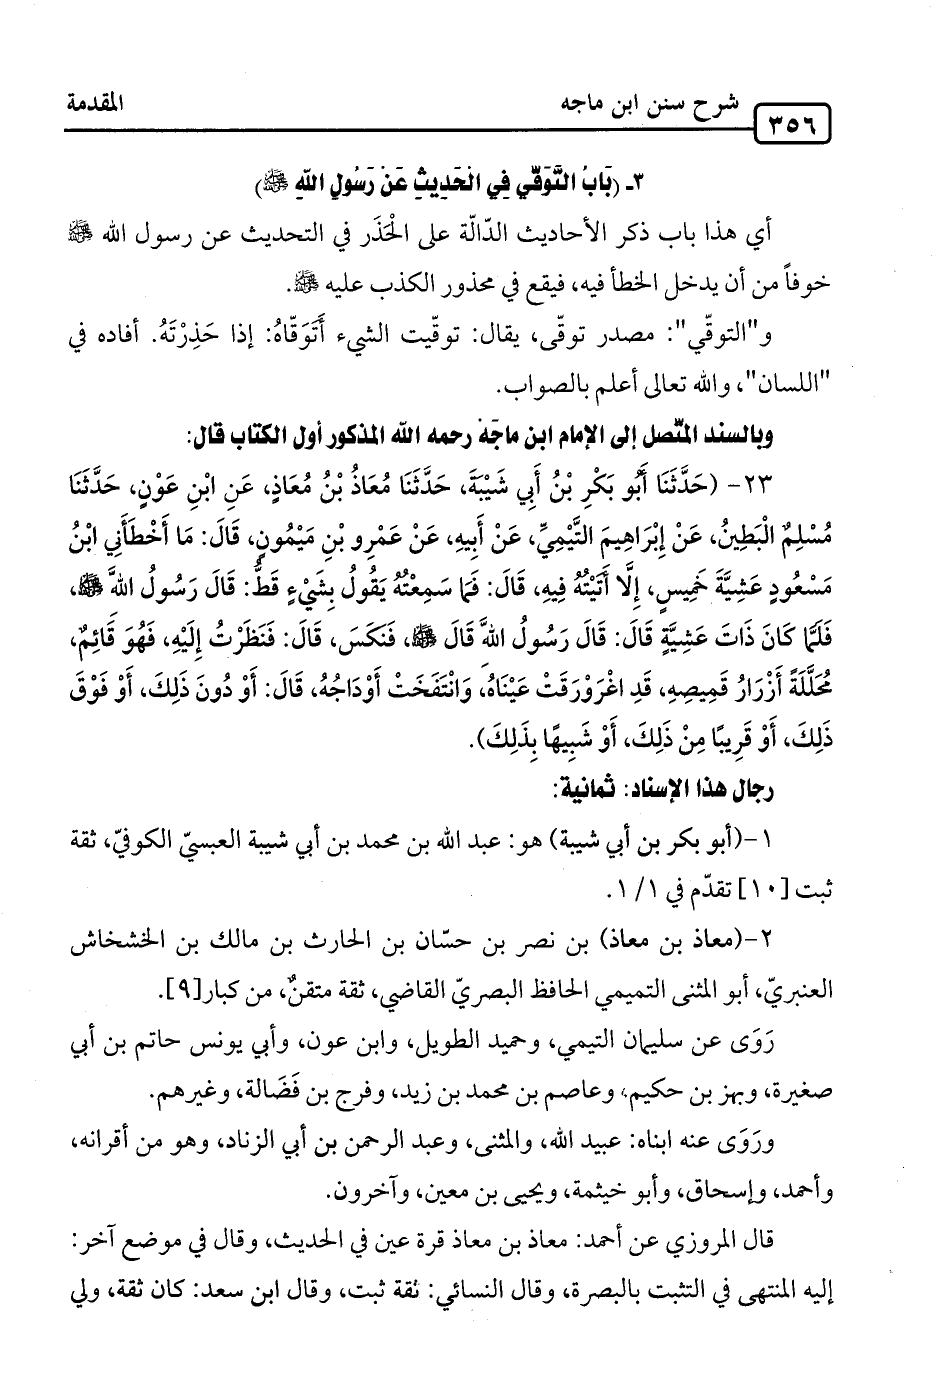 المقدمة
شرح سنن ابن ماجه
٣٥٦
٣ـ (بَابُ التَّوَقِّي فِي الْحَدِيثِ عَنْ رَسُولِ اللهِ ﷺ)
أي هذا باب ذكر الأحاديث الدّالّة على الْحَذَر في التحديث عن رسول الله ﷺ
خوفاً من أن يدخل الخطأ فيه، فيقع في محذور الكذب عليه ﷺ.
و"التوقّي": مصدر توقّى، يقال: توقّيت الشيء أَتَوَقّاهُ: إذا حَذِرْتَهُ. أفاده في
"اللسان"، والله تعالى أعلم بالصواب.
وبالسند المتّصل إلى الإمام ابن ماجَهْ رحمه الله المذكور أول الكتاب قال:
٢٣- (حَدَّثَنَا أَبُو بَكْرِ بْنُ أَبِي شَيْبَةَ، حَدَّثَنَا مُعَاذُ بْنُ مُعَاذٍ، عَنِ ابْنِ عَوْنٍ، حَدَّثَنَا
مُسْلِمٌ الْبَطِينُ، عَنْ إِبْرَاهِيمَ التَّيْمِيِّ، عَنْ أَبِيهِ، عَنْ عَمْرِو بْنِ مَيْمُونٍ، قَالَ: مَا أَخْطَأَنِي ابْنُ
مَسْعُودٍ عَشِيَّةَ خَمِيسٍ، إِلَّا أَتَيْتُهُ فِيهِ، قَالَ: فَمَا سَمِعْتُهُ يَقُولُ بِشَيْءٍ قَطُّ: قَالَ رَسُولُ اللهَِّ ﷺ،
فَلَمَّا كَانَ ذَاتَ عَشِيَّةٍ قَالَ: قَالَ رَسُولُ اللهَِّ قَالَ ﷺ، فَنَكَسَ، قَالَ: فَنَظَرْتُ إِلَيْهِ، فَهُوَ قَائِمٌ،
مُحَلَّلَةً أَزْرَارُ قَمِيصِهِ، قَدِ اغْرَوْرَقَتْ عَيْنَاهُ، وَانْتَفَخَتْ أَوْدَاجُهُ، قَالَ: أَوْ دُونَ ذَلِكَ، أَوْ فَوْقَ
ذَلِكَ، أَوْ قَرِيبًا مِنْ ذَلِكَ، أَوْ شَبِيهًا بِذَلِكَ).
رجال هذا الإسناد: ثمانية:
١-(أبو بكر بن أبي شيبة) هو: عبد الله بن محمد بن أبي شيبة العبسيّ الكوفيّ، ثقة
ثبت [١٠] تقدّم في ١/١.
٢-(معاذ بن معاذ) بن نصر بن حسّان بن الحارث بن مالك بن الخشخاش
العنبريّ، أبو المثنى التميمي الحافظ البصريّ القاضي، ثقة متقنٌ، من كبار[٩].
رَوَى عن سليمان التيمي، وحميد الطويل، وابن عون، وأبي يونس حاتم بن أبي
صغيرة، وبهز بن حكيم، وعاصم بن محمد بن زيد، وفرج بن فَضَالة، وغيرهم.
ورَوَى عنه ابناه: عبيد الله، والمثنى، وعبد الرحمن بن أبي الزناد، وهو من أقرانه،
وأحمد، وإسحاق، وأبو خيثمة، ويحيى بن معين، وآخرون.
قال المروزي عن أحمد: معاذ بن معاذ قرة عين في الحديث، وقال في موضع آخر:
إليه المنتهى في التثبت بالبصرة، وقال النسائي: ثقة ثبت، وقال ابن سعد: كان ثقة، ولي